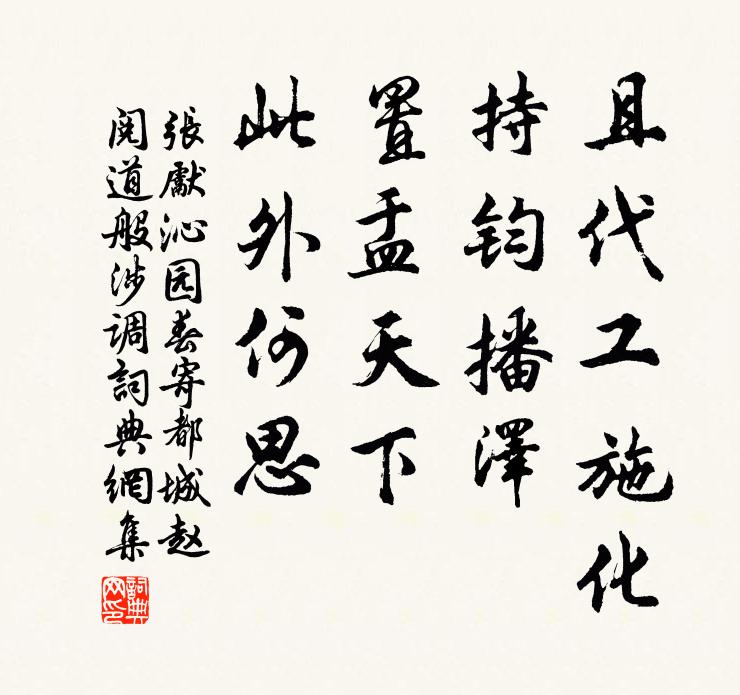 且代工施化
持钧播澤
置盂天下
此外何思
張獻沁园春寄都城赵
阅道般涉调詞典網集
詞典
网印